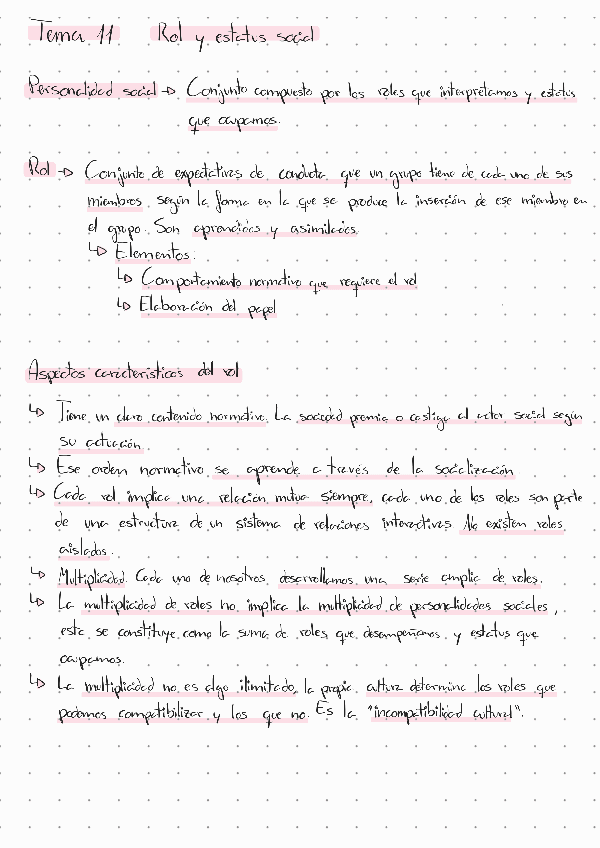 Tema 11 Rol y estatus social
Personalidad social → Conjunto compuesto por los roles que interpretamos y estatus
que ocupamos.
Rol → Conjunto de expectativas de conducta que un grupo tiene de cada uno de sus
miembros, según la forma en la que se produce la inserción de ese miembro en
el grupo. Son aprendidas y asimiladas.
↳ Elementos:
↳ Comportamiento normativo que requiere el rol
↳ Elaboración del papel
Aspectos característicos del rol
↳ Tiene un claro contenido normativo. La sociedad premia o castiga al actor social según
su actuación.
↳ Ese orden normativo se aprende a través de la socialización
↳ Cada rol implica una relación mutua siempre, cada uno de los roles son parte
de una estructura de un sistema de relaciones interactivas. No existen roles
aislados.
↳ Multiplicidad. Cada uno de nosotros, desarrollamos una serie amplia de roles.
↳ La multiplicidad de roles no implica la multiplicidad de personalidades sociales,
esta se constituye como la suma de roles que desempeñamos y estatus que
ocupamos.
↳ La multiplicidad no es algo ilimitado, la propia cultura determina los roles que
podemos compatibilizar y los que no. Es la "incompatibilidad cultural".